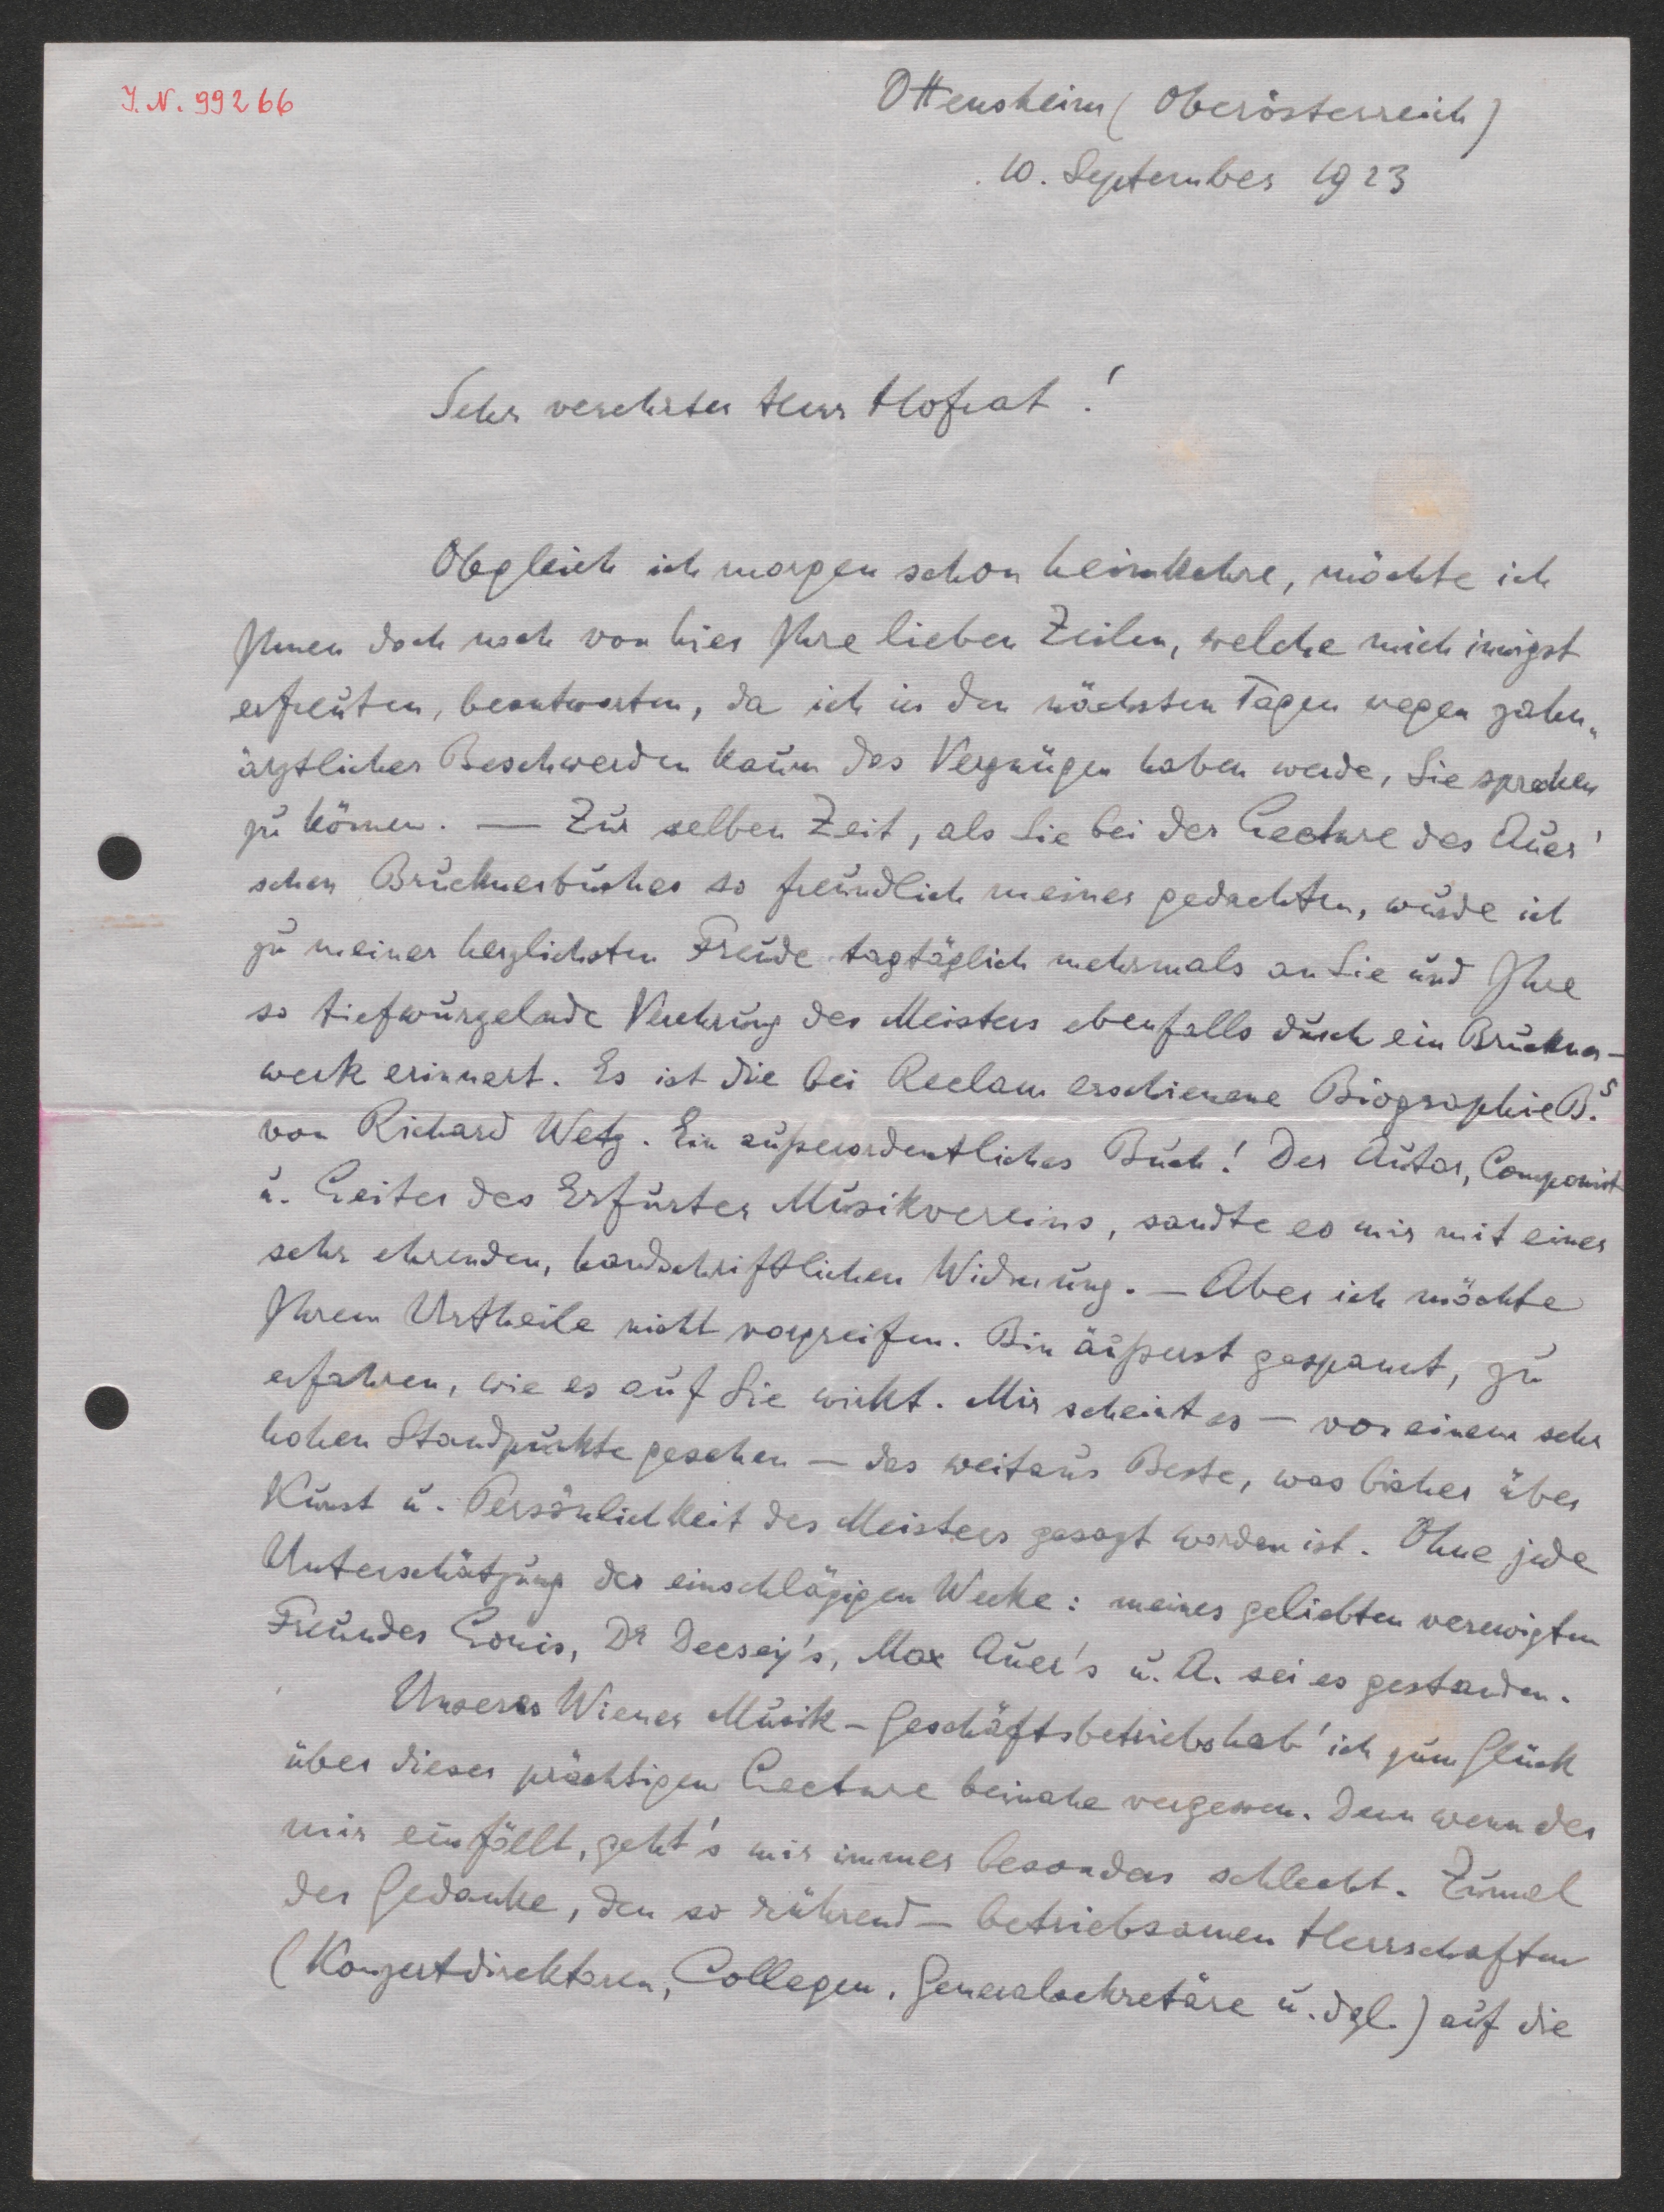 I.N. 99266
Ottensheim (Oberösterreich)
10. September 1923
Sehr verehrter Herr Hofrat!
Obgleich ich morgen schon heimkehre, möchte ich
Ihnen doch noch von hier Ihre lieben Zeilen, welche mich innigst
erfreuten, beantworten, da ich in den nächsten Tagen wegen zahn„
ärztlicher Beschwerden kaum das Vergnügen haben werde, Sie sprechen
zu können. — Zur selben Zeit, als Sie bei der Lecture des Auer'
schen Brucknerbuches so freundlich meiner gedachten, wurde ich
zu meiner herzlichsten Freude tagtäglich mehrmals an Sie und Ihre
so tiefwurzelnde Verehrung des Meisters ebenfalls durch ein Bruckner-
werk erinnert. Es ist die bei Reclam erschienene Biographie B.s
von Richard Wetz. Ein außerordentliches Buch! Der Autor, Componist
u. Leiter des Erfurter Musikvereins, sandte es mir mit einer
sehr ehrenden, handschriftlichen Widmung. — Aber ich möchte
Ihrem Urtheile nicht vorgreifen. Bin äußerst gespannt, zu
erfahren, wie es auf Sie wirkt. Mir scheint es — von einem sehr
hohen Standpunkte gesehen — das weitaus Beste, was bisher über
Kunst u. Persönlichkeit des Meisters gesagt worden ist. Ohne jede
Unterschätzung der einschlägigen Werke: meines geliebten verewigten
Freundes Louis, Dr Decsey's, Max Auer's u. A. sei es gestanden.
Unseres Wiener Musik-Geschäftsbetriebs hab' ich zum Glück
über dieser prächtigen Lecture beinahe vergessen. Denn wenn der
mir einfällt, geht's mir immer besonders schlecht. Zumal
der Gedanke, den so rührend-betriebsamen Herrschaften
(Konzertdirektoren, Collegen, Generalsekretäre u. dgl.) auf die